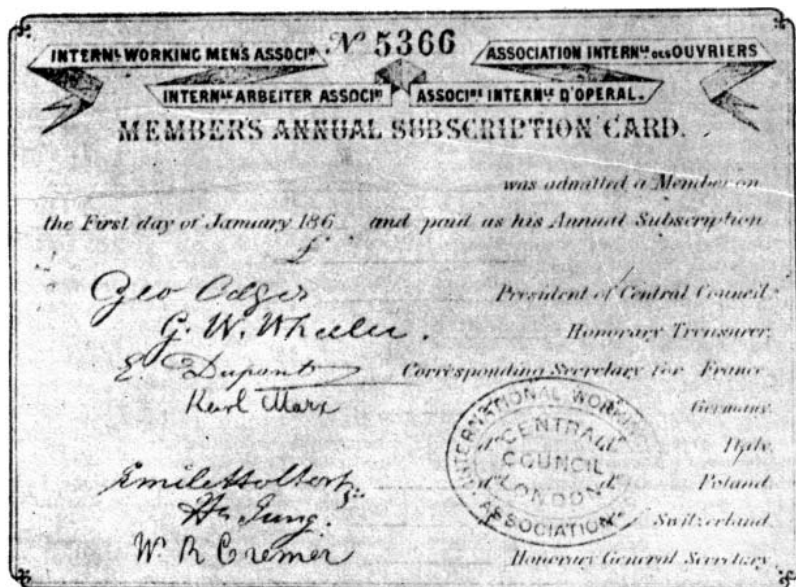 Nº 5366
INTERNL WORKING MEN'S ASSOCIN
ASSOCIATION INTERNLE DES OUVRIERS
INTERNLE ARBEITER ASSOCIN
ASSOCINE INTERNLE D'OPERAI.
MEMBER'S ANNUAL SUBSCRIPTION CARD.
was admitted a Member on
the First day of January 186 and paid as his Annual Subscription
£
Geo Odger President of Central Council.
G. W. Wheeler. Honorary Treasurer.
E Dupont Corresponding Secretary for France
Karl Marx Germany.
Italy.
Emile Holtorp Poland.
H. Jung. Switzerland.
W. R Cremer Honorary General Secretary
INTERNATIONAL WORKING
ASSOCIATION
CENTRAL
COUNCIL
LONDON